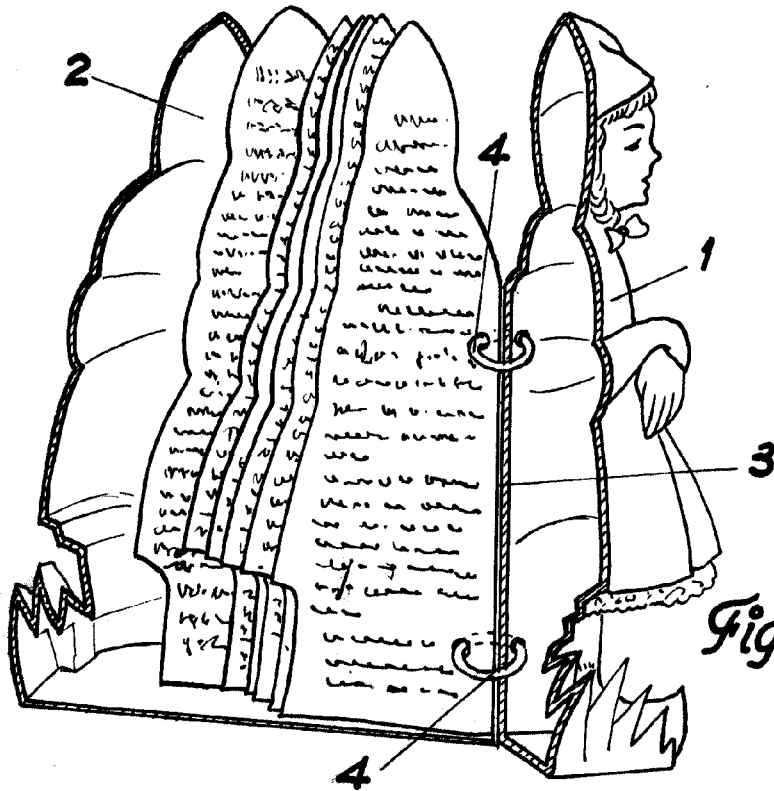 2
4
1
3
Fig
4